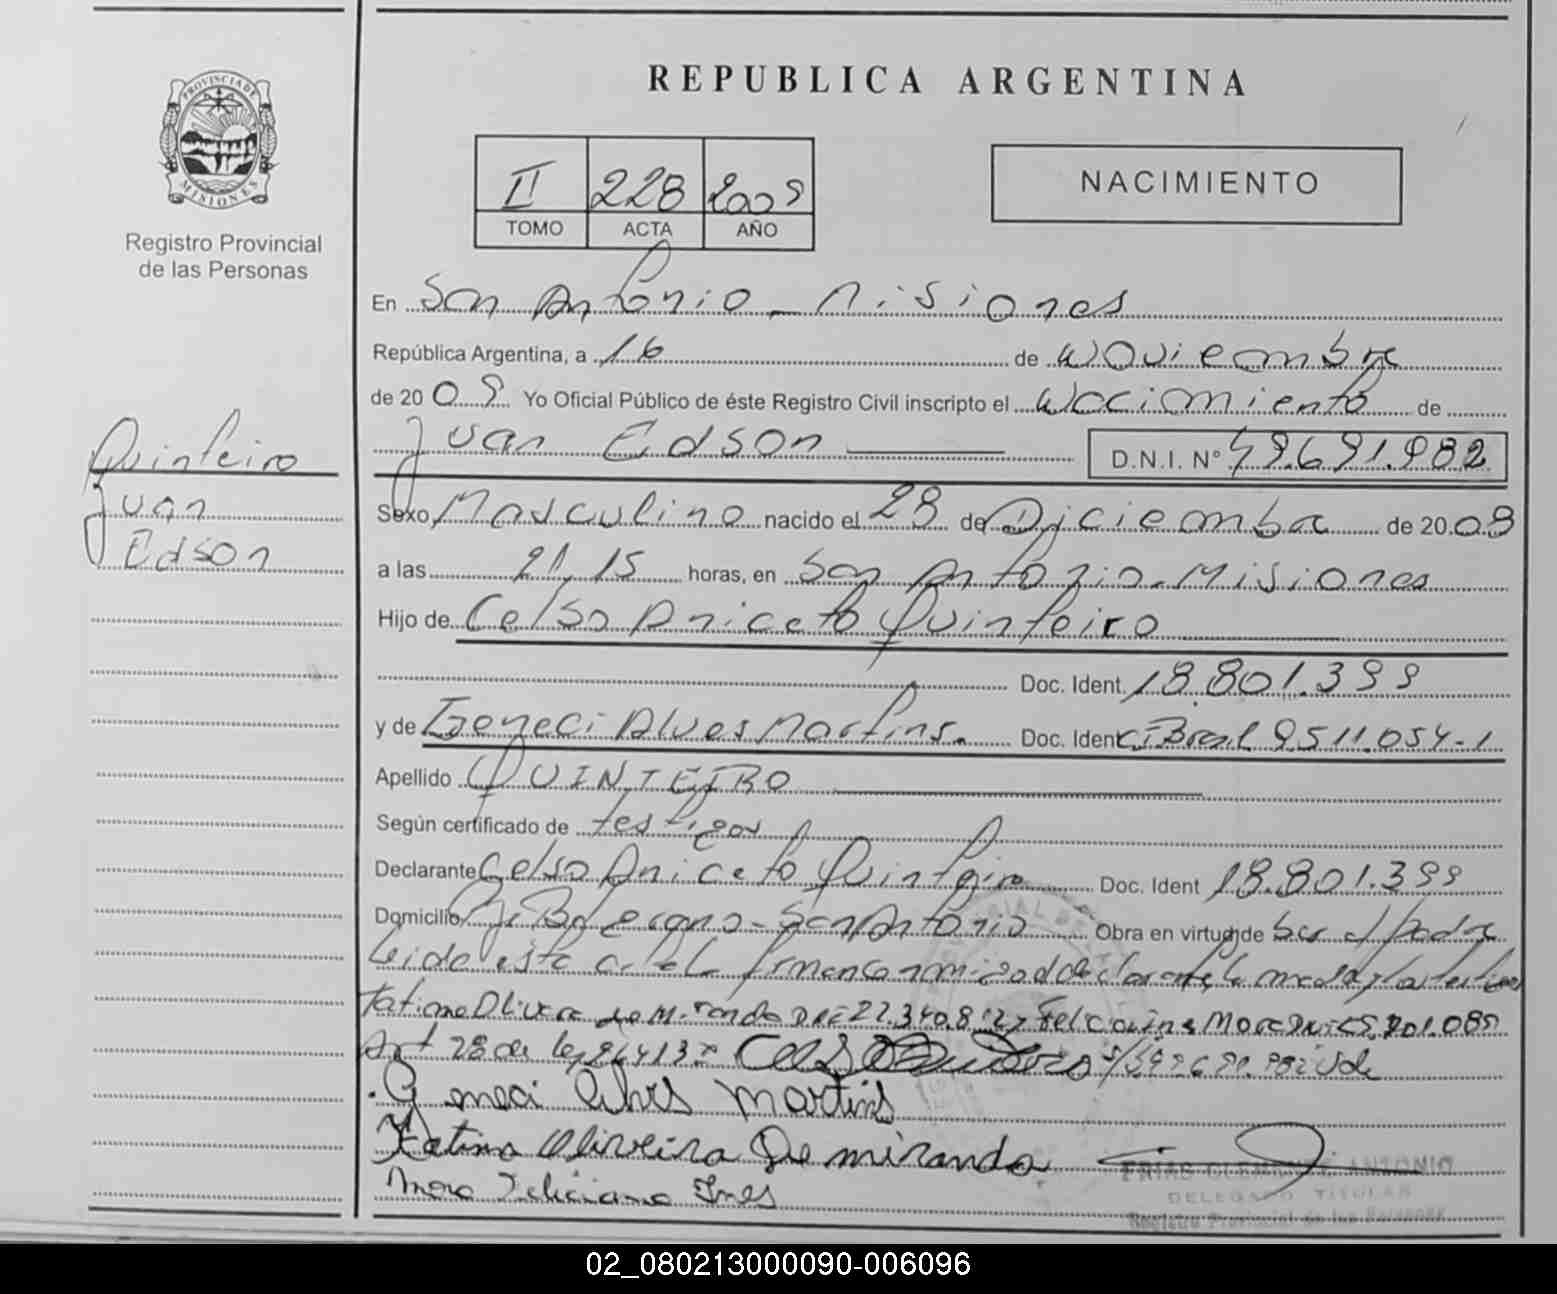 REPUBLICA ARGENTINA
PROVINCIA DE
MISIONES
Registro Provincial
de las Personas
II 228 2009
TOMO ACTA AÑO
NACIMIENTO
En San Antonio - Misiones
República Argentina, a 16 de Noviembre
de 20 09 Yo Oficial Público de éste Registro Civil inscripto el Nacimiento de
Juan Edson D.N.I. Nº 49.691.982
Quinteiro
Juan
Edson
Sexo Masculino nacido el 28 de Diciembre de 20
a las 21,15 horas, en San Antonio - Misiones
Hijo de Celso Aniceto Quinteiro
Doc. Ident. 18.801.399
y de Geneci Alves Martins. Doc. Ident CI Brasil 9511.054-1
Apellido QUINTEIRO
Según certificado de testigos
Declarante Celso Aniceto Quinteiro Doc. Ident 18.801.399
Domicilio San Antonio Obra en virtud de Ser el Padre
Leida esta acta la firman conmigo el declarante, la madre y los testigos
Oliveira de Miranda DNI 22.340.812 y
Art 28 de ley 26413
Geneci Alves Martins
Oliveira De miranda
Mora Feliciana Ines
FRIAS CLEMENTE ANTONIO
DELEGADO TITULAR
Registro Provincial de las Personas
02_080213000090-006096